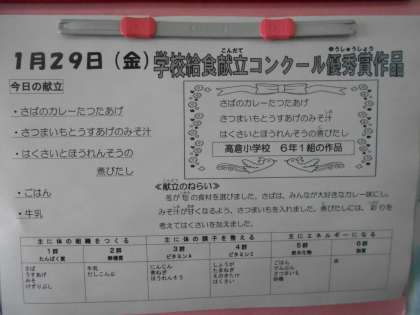 1月29日(金) 学校給食献立コンクール優秀賞作品
こんだて
ゆうしゅうしょう
今日の献立
・さばのカレーたつたあげ
・さつまいもとうすあげのみそ汁
・はくさいとほうれんそうの
煮びたし
・ごはん
・牛乳
さばのカレーたつたあげ
さつまいもとうすあげのみそ汁
はくさいとほうれんそうの煮びたし
高倉小学校 6年1組の作品
≪献立のねらい≫
冬が旬の食材を選びました。さばは、みんなが大好きなカレー味にし、
みそ汁が甘くなるよう、さつまいもを入れました。煮びたしには、彩りを
考えてはくさいを加えました。
主に体の組織をつくる 主に体の調子を整える 主にエネルギーになる
1群 2群 3群 4群 5群 6群
たんぱく質 無機質 ビタミンA ビタミンC 炭水化物 脂質
さば 牛乳 にんじん しょうが ごはん
うすあげ だしこんぶ 青ねぎ たまねぎ でんぷん
みそ ほうれんそう えのきたけ さつまいも
けずりぶし はくさい 砂糖